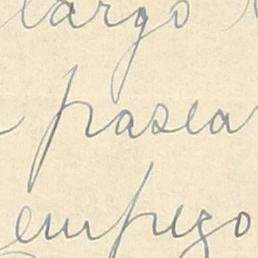 largo
pasea
empezo